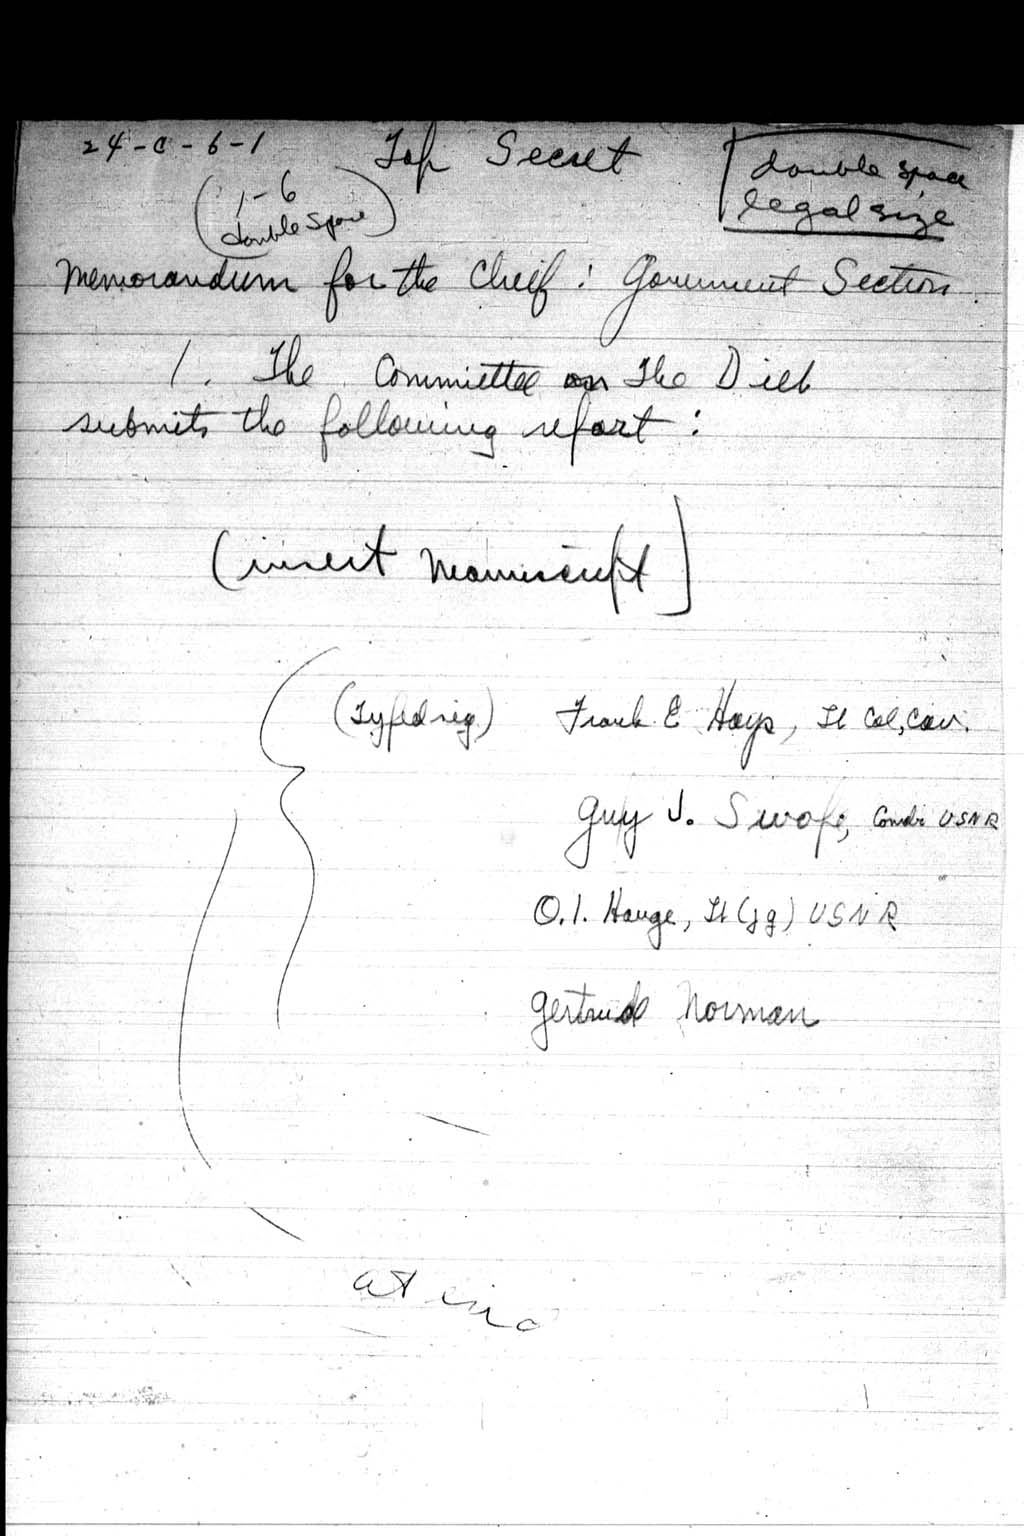 24-C-6-1
Top Secret
double space
legal size
(1-6
double space)
Memorandum for the Chief: Government Section.
1. The Committee on The Diet
submits the following report:
(insert manuscript]
(Typed sig) Frank E Hays, Lt Col, Cav.
Guy J. Swope, Comdr USNR
O.I. Hauge, Lt (jg) USNR
Gertrude Norman
at end